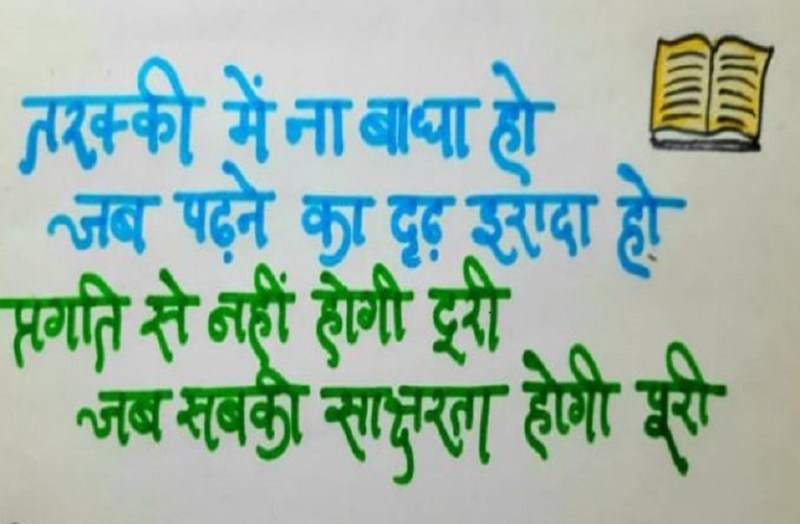 तरक्की में ना बाधा हो
जब पढ़ने का दृढ़ इरादा हो
प्रगति से नहीं होगी दूरी
जब सबकी साक्षरता होगी पूरी